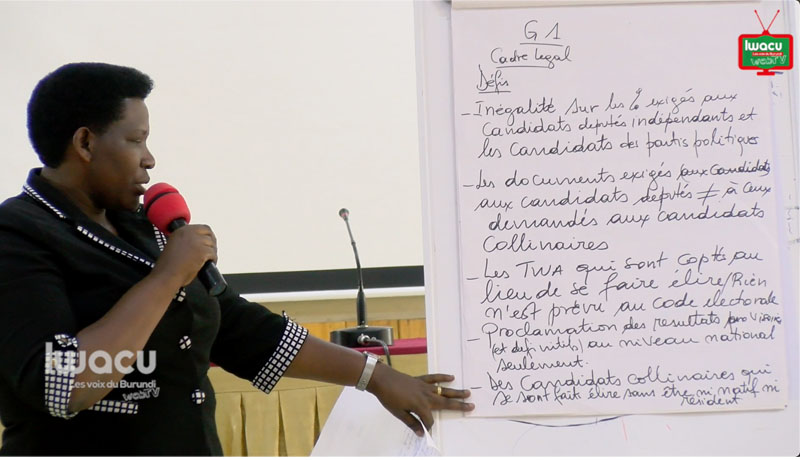 G1
Cadre légal
Défis
- Inégalité sur les % exigés aux
candidats députés indépendants et
les candidats des partis politiques
- Les documents exigés aux candidats
aux candidats députés ≠ à ceux
demandés aux candidats
collinaires
- Les TWA qui sont coptés au
lieu de se faire élire/Rien
n'est prévu au code électorale
- Proclamation des resultats provisoires
(et définitifs) au niveau national
seulement.
- Des Candidats collinaires qui
se sont faits élire sans être ni natif ni
résident
Iwacu
Les voix du Burundi
webTV
Iwacu
Les voix du Burundi
webTV